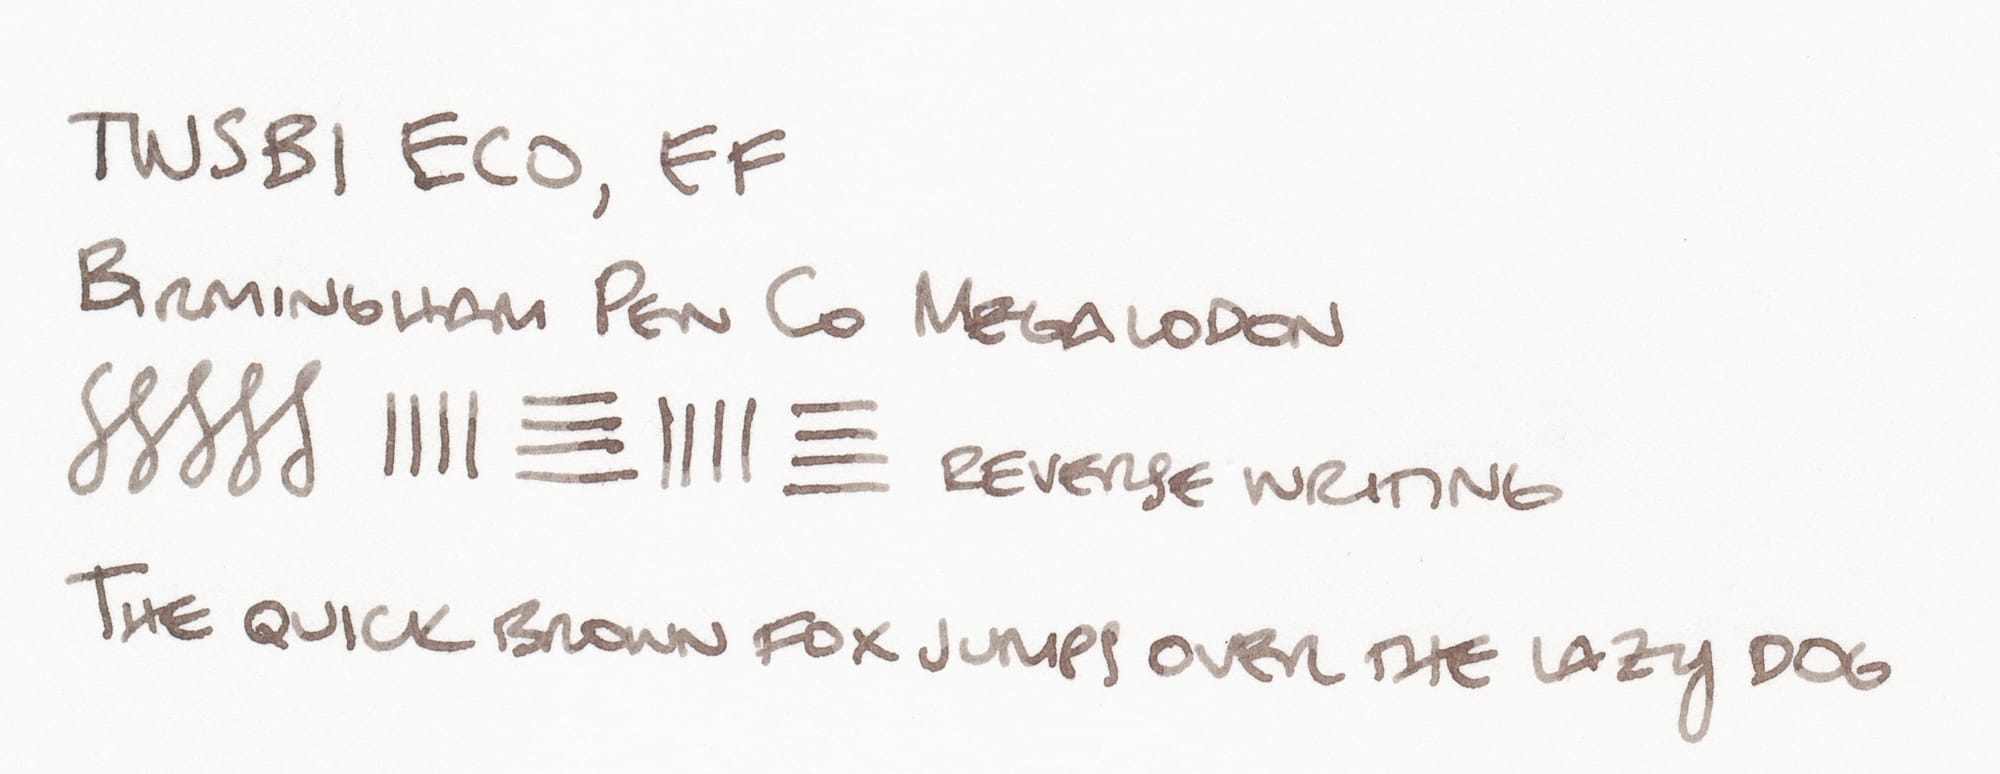 TWSBI ECO, EF
BIRMINGHAM PEN CO MEGALODON
REVERSE WRITING
THE QUICK BROWN FOX JUMPS OVER THE LAZY DOG